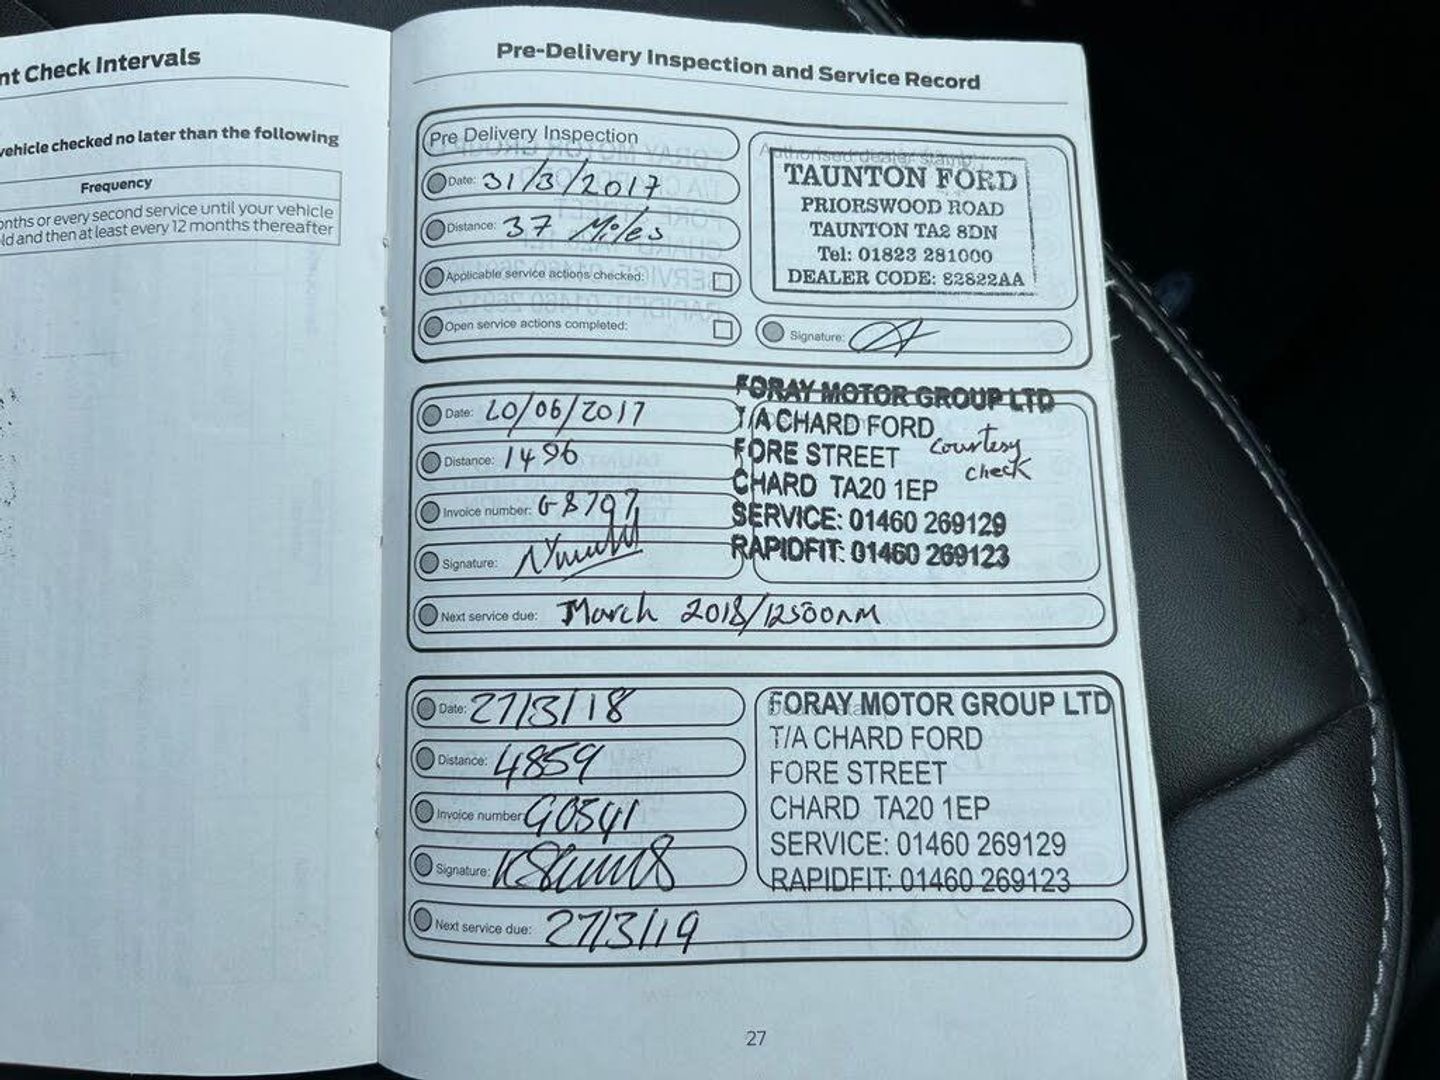 nt Check Intervals
vehicle checked no later than the following
Frequency
onths or every second service until your vehicle
ld and then at least every 12 months thereafter
Pre-Delivery Inspection and Service Record
Pre Delivery Inspection
Date: 31/3/2017
Distance: 37 Miles
Applicable service actions checked:
Open service actions completed:
Authorised dealer stamp
TAUNTON FORD
PRIORSWOOD ROAD
TAUNTON TA2 8DN
Tel: 01823 281000
DEALER CODE: 82822AA
Signature:
Date: 20/06/2017
Distance: 1496
Invoice number: G8707
Signature:
FORAY MOTOR GROUP LTD
T/A CHARD FORD
FORE STREET
CHARD TA20 1EP
SERVICE: 01460 269129
RAPIDFIT: 01460 269123
Courtesy
check
Next service due: March 2018/12500
Date: 27/3/18
Distance: 4859
Invoice number G0541
Signature:
FORAY MOTOR GROUP LTD
T/A CHARD FORD
FORE STREET
CHARD TA20 1EP
SERVICE: 01460 269129
RAPIDFIT: 01460 269123
Next service due: 27/3/19
27